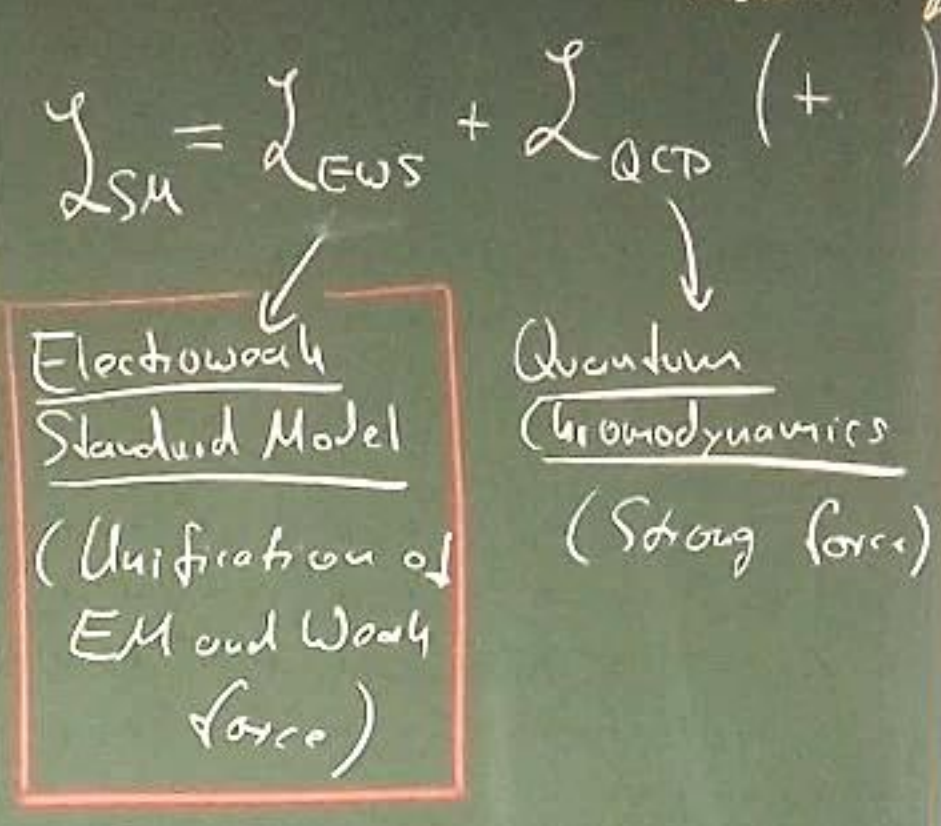 ℒSM = ℒEWS + ℒQCD (+ )
Electroweak
Standard Model
(Unification of
EM and Weak
force)
Quantum
Chromodynamics
(Strong force)